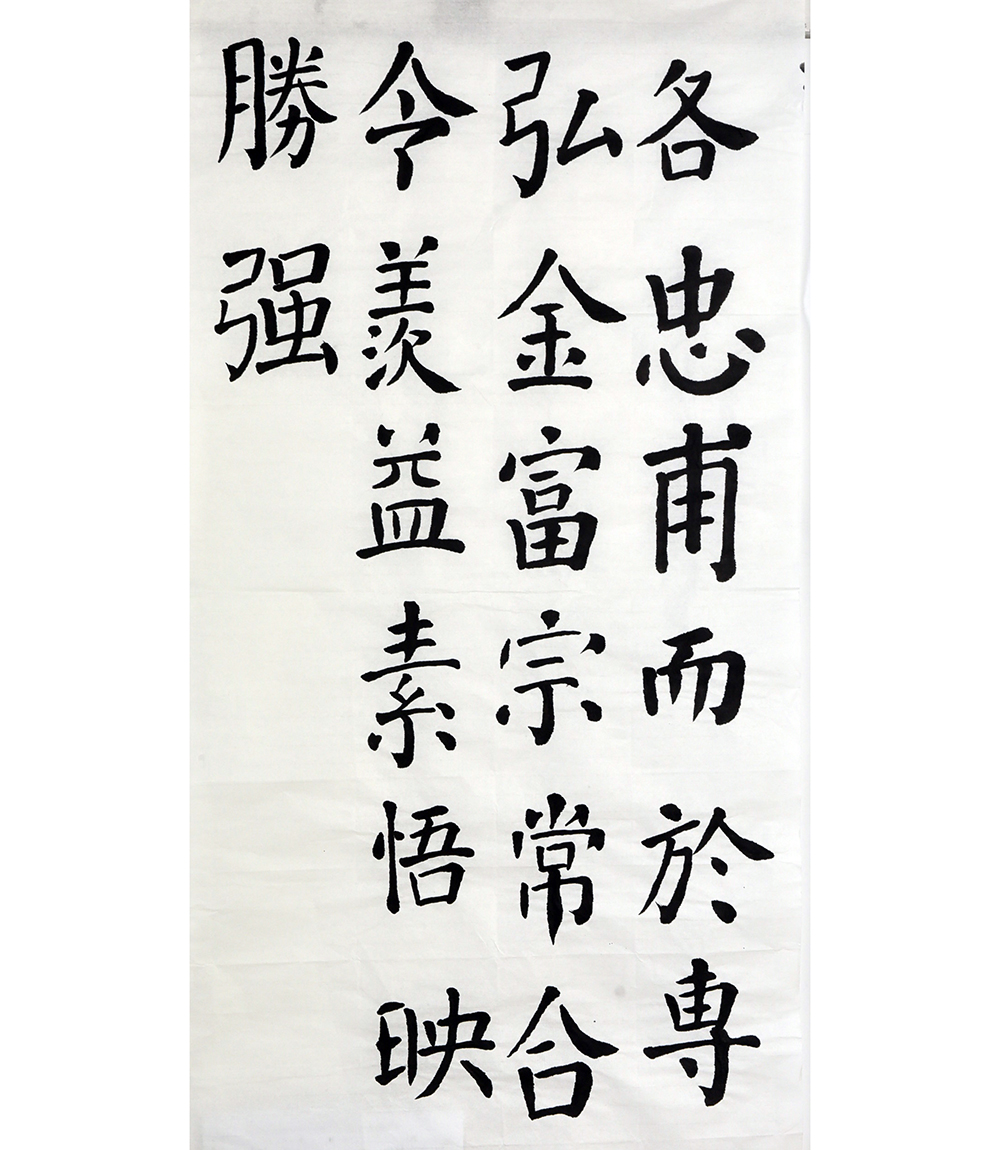 各忠甫而於専
弘金富宗常合
令羨益素悟映
勝强